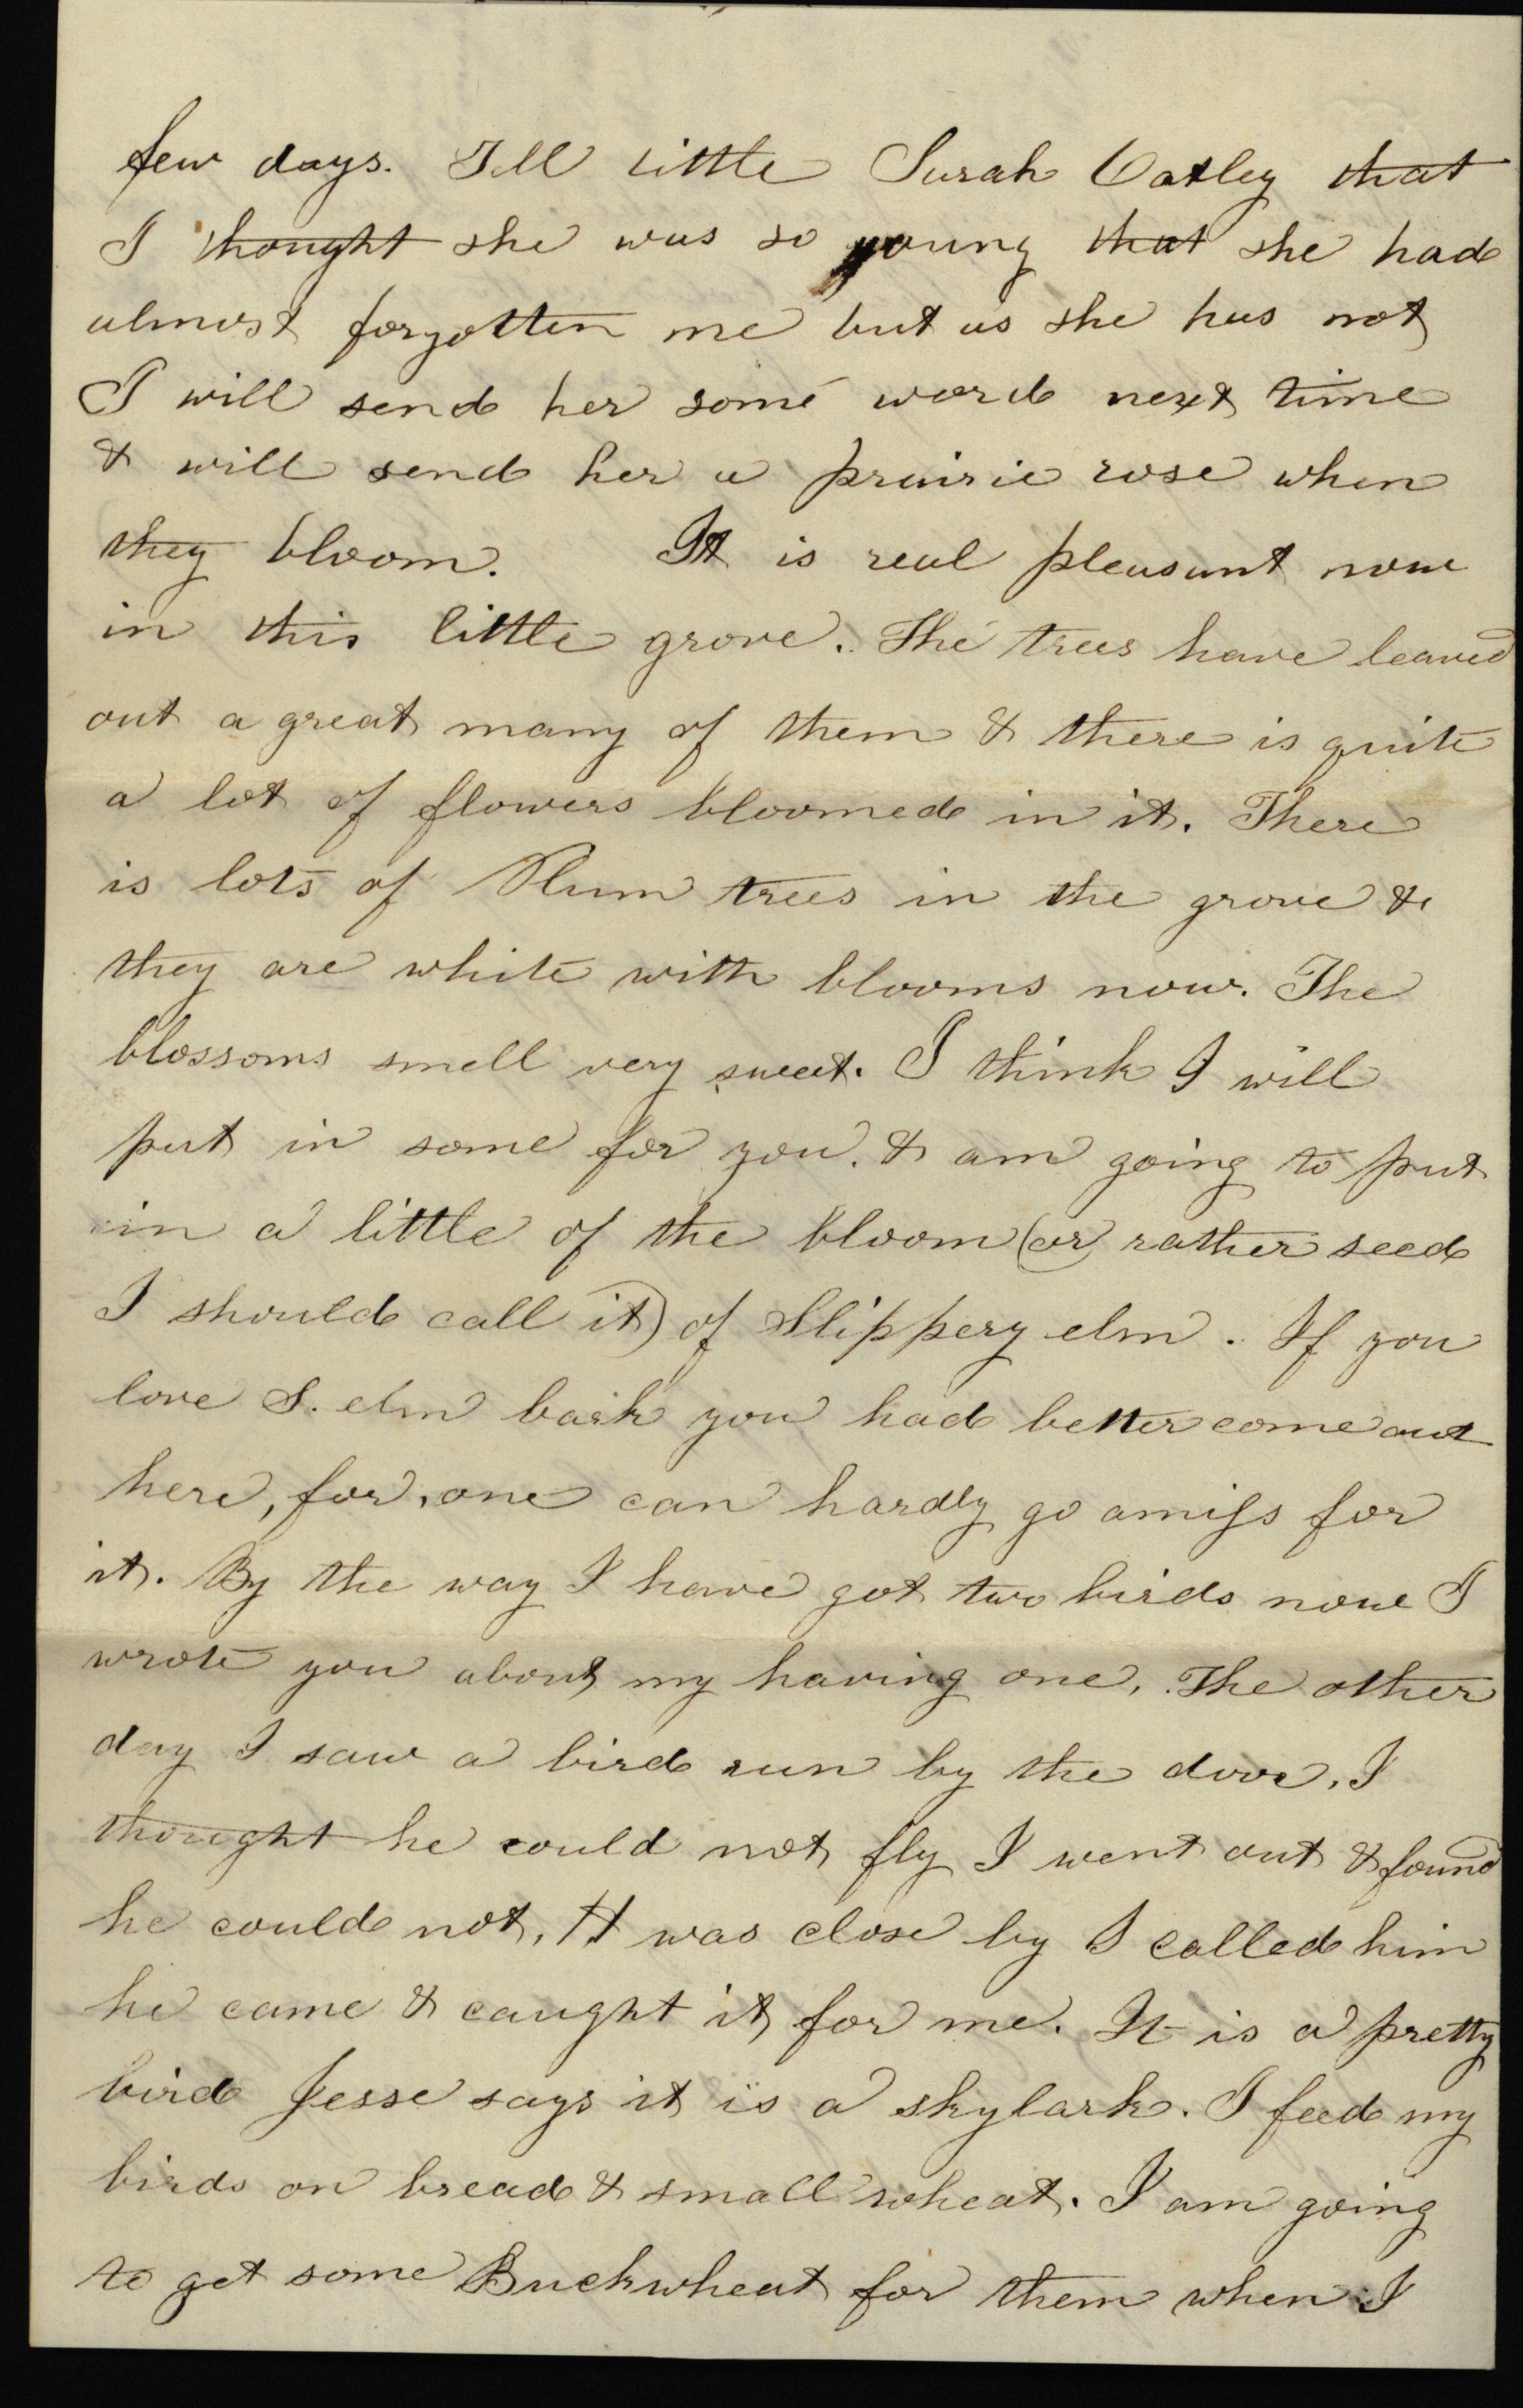 few days. Tell little Sarah Oatley that
I thought she was so young that she had
almost forgotten me but as she has not
I will send her some word next time
& will send her a prairie rose when
they bloom. It is real pleasant now
in this little grove. The trees have leaved
out a great many of them & there is quite
a lot of flowers bloomed in it. There
is lots of Plum trees in the grove &
they are white with blooms now. The
blossoms smell very sweet. I think I will
put in some for you. & am going to put
in a little of the bloom (or rather seed
I should call it) of Slippery elm. If you
love S. elm bark you had better come out
here, for, one can hardly go amiss for
it. By the way I have got two birds now I
wrote you about my having one. The other
day I saw a bird run by the door. I
thought he could not fly I went out & found
he could not. H was close by I called him
he came & caught it for me. It is a pretty
bird Jesse says it is a skylark. I feed my
birds on bread & small wheat. I am going
to get some Buckwheat for them when I